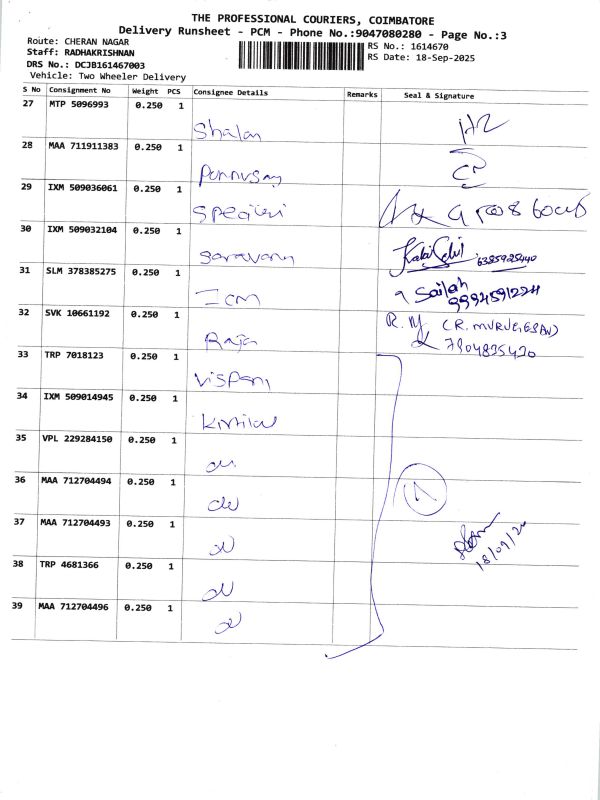 THE PROFESSIONAL COURIERS, COIMBATORE
Delivery Runsheet - PCM - Phone No.:9047080280 - Page No.:3
Route: CHERAN NAGAR
RS No.: 1614670
Staff: RADHAKRISHNAN
RS Date: 18-Sep-2025
DRS No.: DCJB161467003
Vehicle: Two Wheeler Delivery
S No Consignment No Weight PCS Consignee Details Remarks Seal & Signature
27 MTP 5096993 0.250 1
Shalan
28 MAA 711911383 0.250 1
Ponnusamy
29 IXM 509036061 0.250 1
30 IXM 509032104 0.250 1
Saravanan
6385925440
31 SLM 378385275 0.250 1
ICM Sailah
32 SVK 10661192 0.250 1
R. M (R. MURUGESAN)
Raja 7904835420
33 TRP 7018123 0.250 1
34 IXM 509014945 0.250 1
35 VPL 229284150 0.250 1
36 MAA 712704494 0.250 1
37 MAA 712704493 0.250 1
38 TRP 4681366 0.250 1
39 MAA 712704496 0.250 1